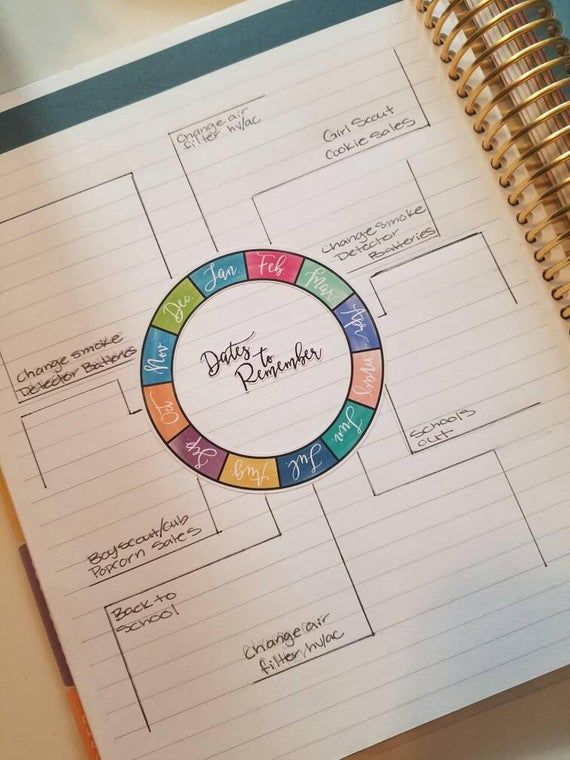 Change air
filter hv/ac
Girl Scout
Cookie Sales
Change smoke
Detector
Batteries
Jan.
Feb.
Mar.
Apr.
May
Jun.
Jul
Aug
Sep
Oct
Nov.
Dec.
Dates
to
Remember
Change smoke
Detector Batteries
Schools
out
Boyscout/cub
Popcorn Sales
Back to
School
change air
filter, hv/ac